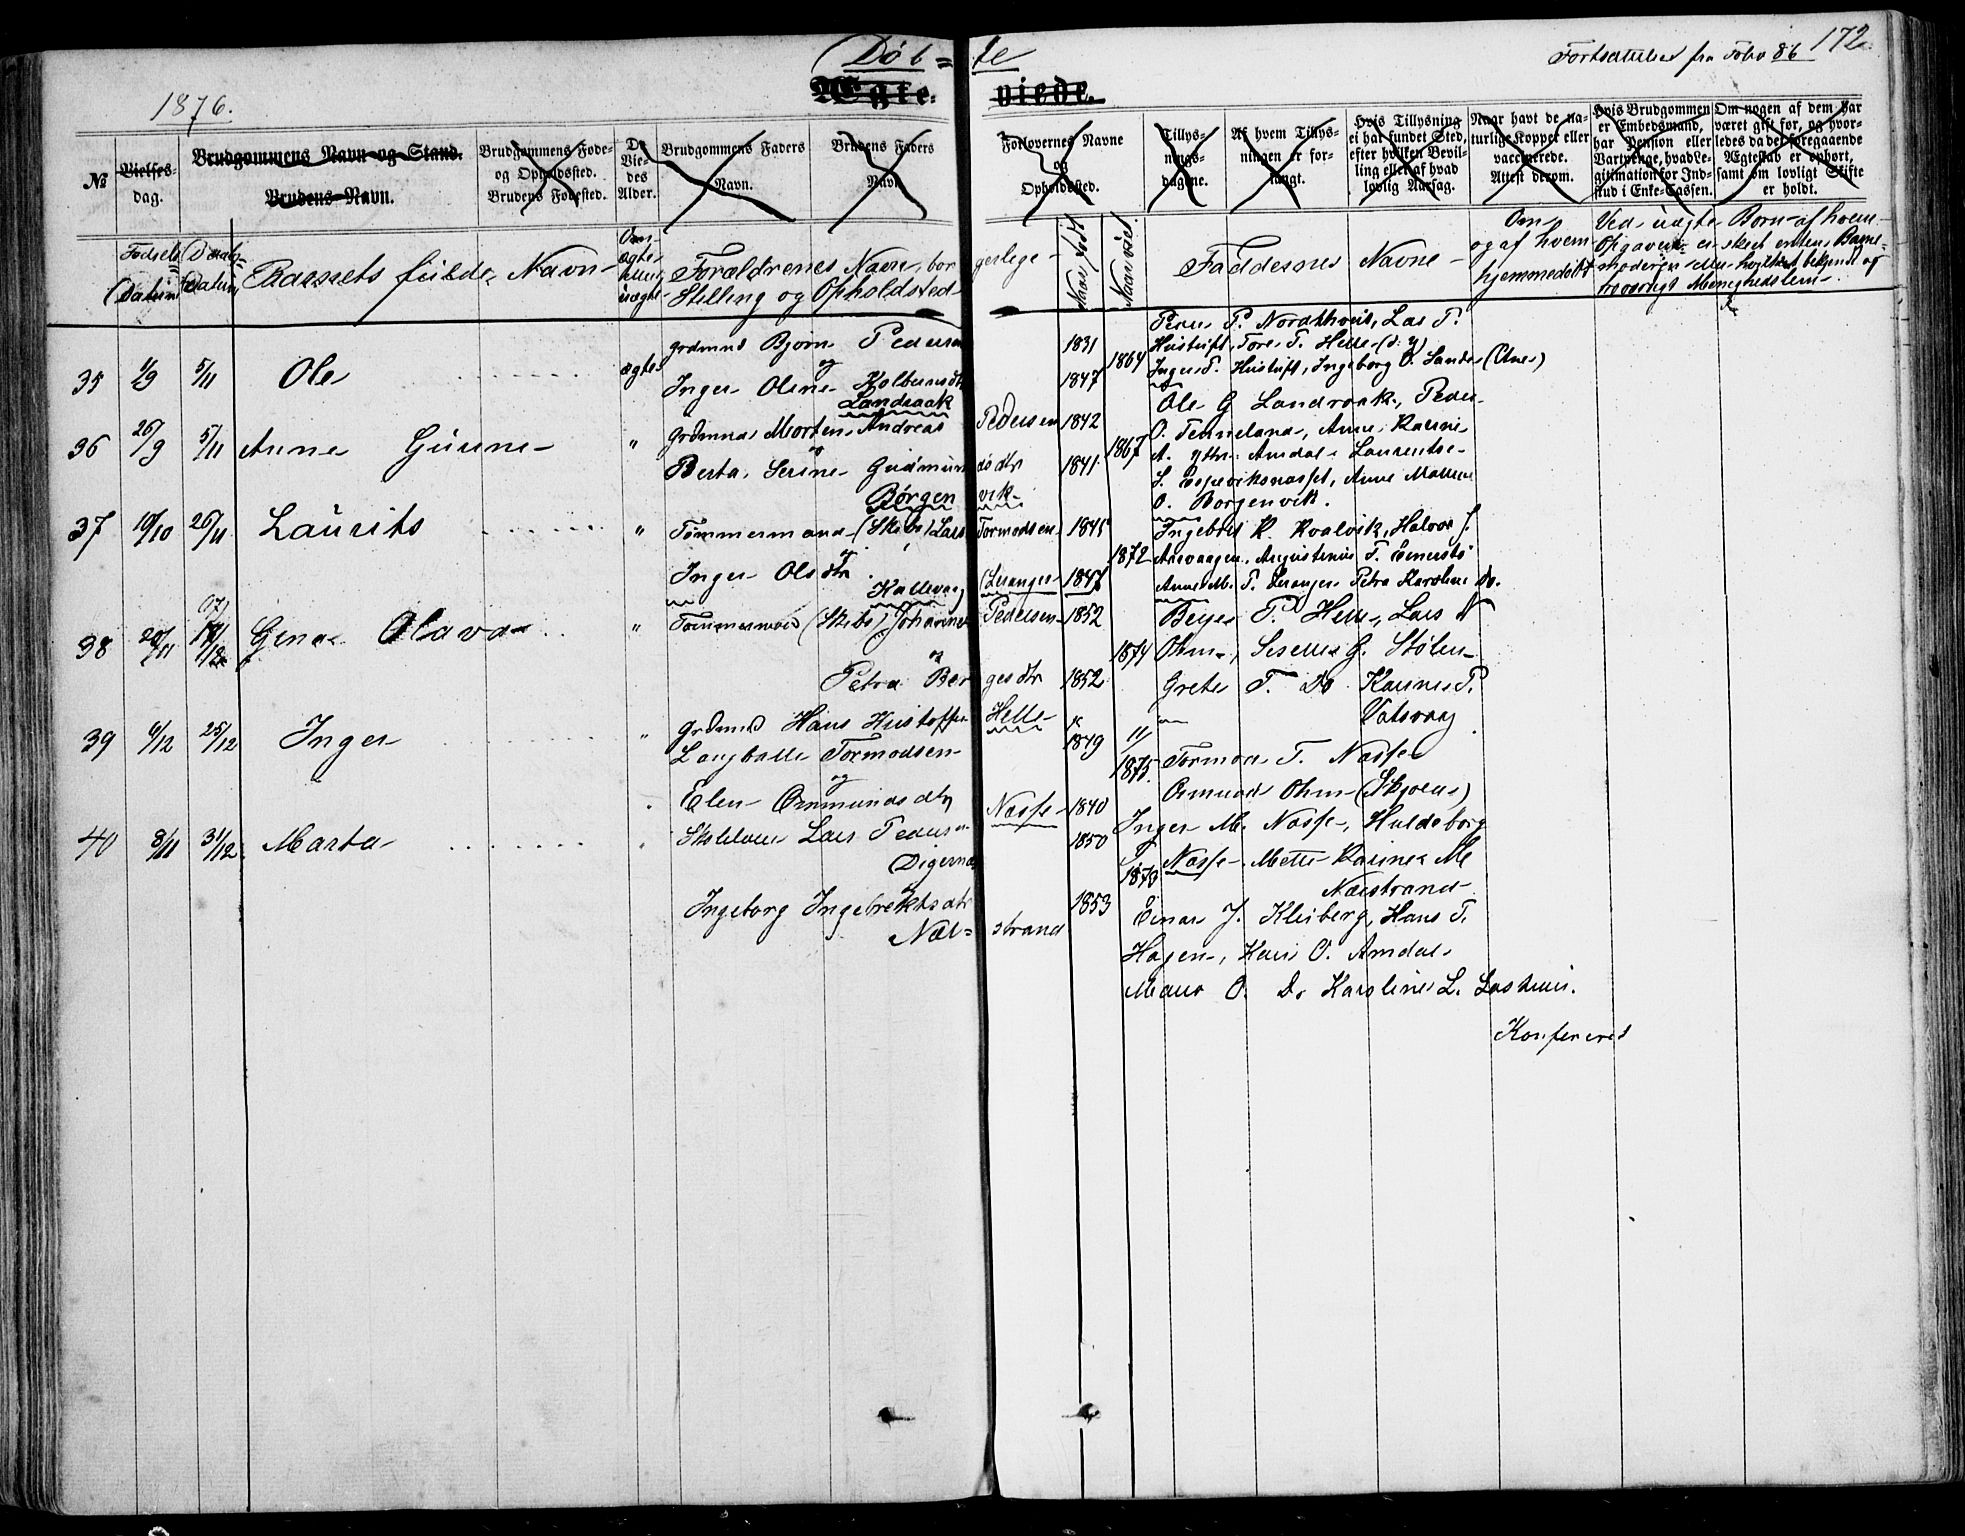 172
Fortsættelse fra Folio 86
Døb = te
Ægte= viede.
1876.
№
Vielses-
dag.
Brudgommens Navn og Stand.
Brudens Navn.
Brudgommens Føde-
og Opholdssted.
Brudens Fødested.
De
Vie-
des
Alder.
Brudgommens Faders
Navn.
Brudens Faders
Navn
Forlovernes Navne
og
Opholdssted.
Tillys-
nings-
dagene.
Af hvem Tillys-
ningen er for-
langt.
Hvis Tillysning
ei har fundet Sted,
efter hvilken Bevil-
ling eller af hvad
lovlig Aarsag.
Naar havt de na-
turlige Kopper eller
vaccinerede.
Attest derom.
Hvis Brudgommen
er Embedsmand,
har Pension eller
Vartpenge, hvad Le-
gitimation for Ind-
skud i Enke-Cassen.
Om nogen af dem har
været gift før, og hvor-
ledes da det foregaaende
Ægteskab er ophørt,
samt om lovligt Skifte
er holdt.
Fødsels
(Datum
Daabs-
Datum
Barnets fulde Navn
Om
ægte
eller
uægte
Forældrenes Navn, bor
gerlige
Stilling og Opholdsted
Naar født
Naar viet
Faddernes Navne
Om
og af hvem
hjemmedøbt
Ved uægte Børn af hvem
Opgaven er skeet enten Barne-
moderen eller hvilket bekjendt og
troværdigt Menighedslem
35 1/9 5/11 Ole ægte
Grdmnd Bjørn Pedersen 1831
og
Inger Oline Kolbensdtr 1847
Landraak
1864
Peder P. Nordthveit, Lars T.
Hustuft, Tore T. Helle (d. y)
Inger T. Hustuft, Ingeborg O. Sande (Utne)
36 26/9 5/11 Anne Gurine "
Grdmnd Morten Andreas Pedersen 1842
og
Berta Serine Gudmunds dtr 1841
Børgenvik
1867
Ole G Landraak, Peder
O. Tenneland, Anne Karine
A. ytre Amdal Laurentse
S. Espeviksnæsset, Anne Malene
O. Borgenvik.
37 10/10 26/11 Laurits "
Tømmermand (Skibs) Lars Tormodsen 1845
og
Inger Olsdtr 1847
Kallevaag (Leranger
1872
Ingebret K. Kvalvik, Halvor J.
Aasvaagen, Augustinius T.
Anne M. T. Leranger Petra Karoline Do.
38 20/11 17/12 Gina Olava "
Tømmermand (Skibs) Johannes Pedersen 1852
og
Petra Bergesdtr 1852
Helle
1874
Berge P. Helle, Lars N
Ohm, Siselle G. Stølen
Grete T. Do Karine P.
Vatsvaag
39 6/12 25/12 Inger "
Grdmnd Hans Kristoffer 1849
Langballe Tormodsen
og
Elen Ormundsdtr 1840
Nasse
1875
Tormod T. Nasse
Ormund Ohm (Skjoens)
Inger M. Nasse, Huldeborg
Nasse Mette Karine M
Nærstrand
40 8/11 31/12 Marta
Skolelærer Lars Pedersen 1850
Digernæs
Ingeborg Ingebrektsdtr 1853
Næ= strand
1873
Einar J. Kleiberg, Hans T.
Hagen, Kari O. Amdal
Maur O. Do Karoline L.
Konfereret